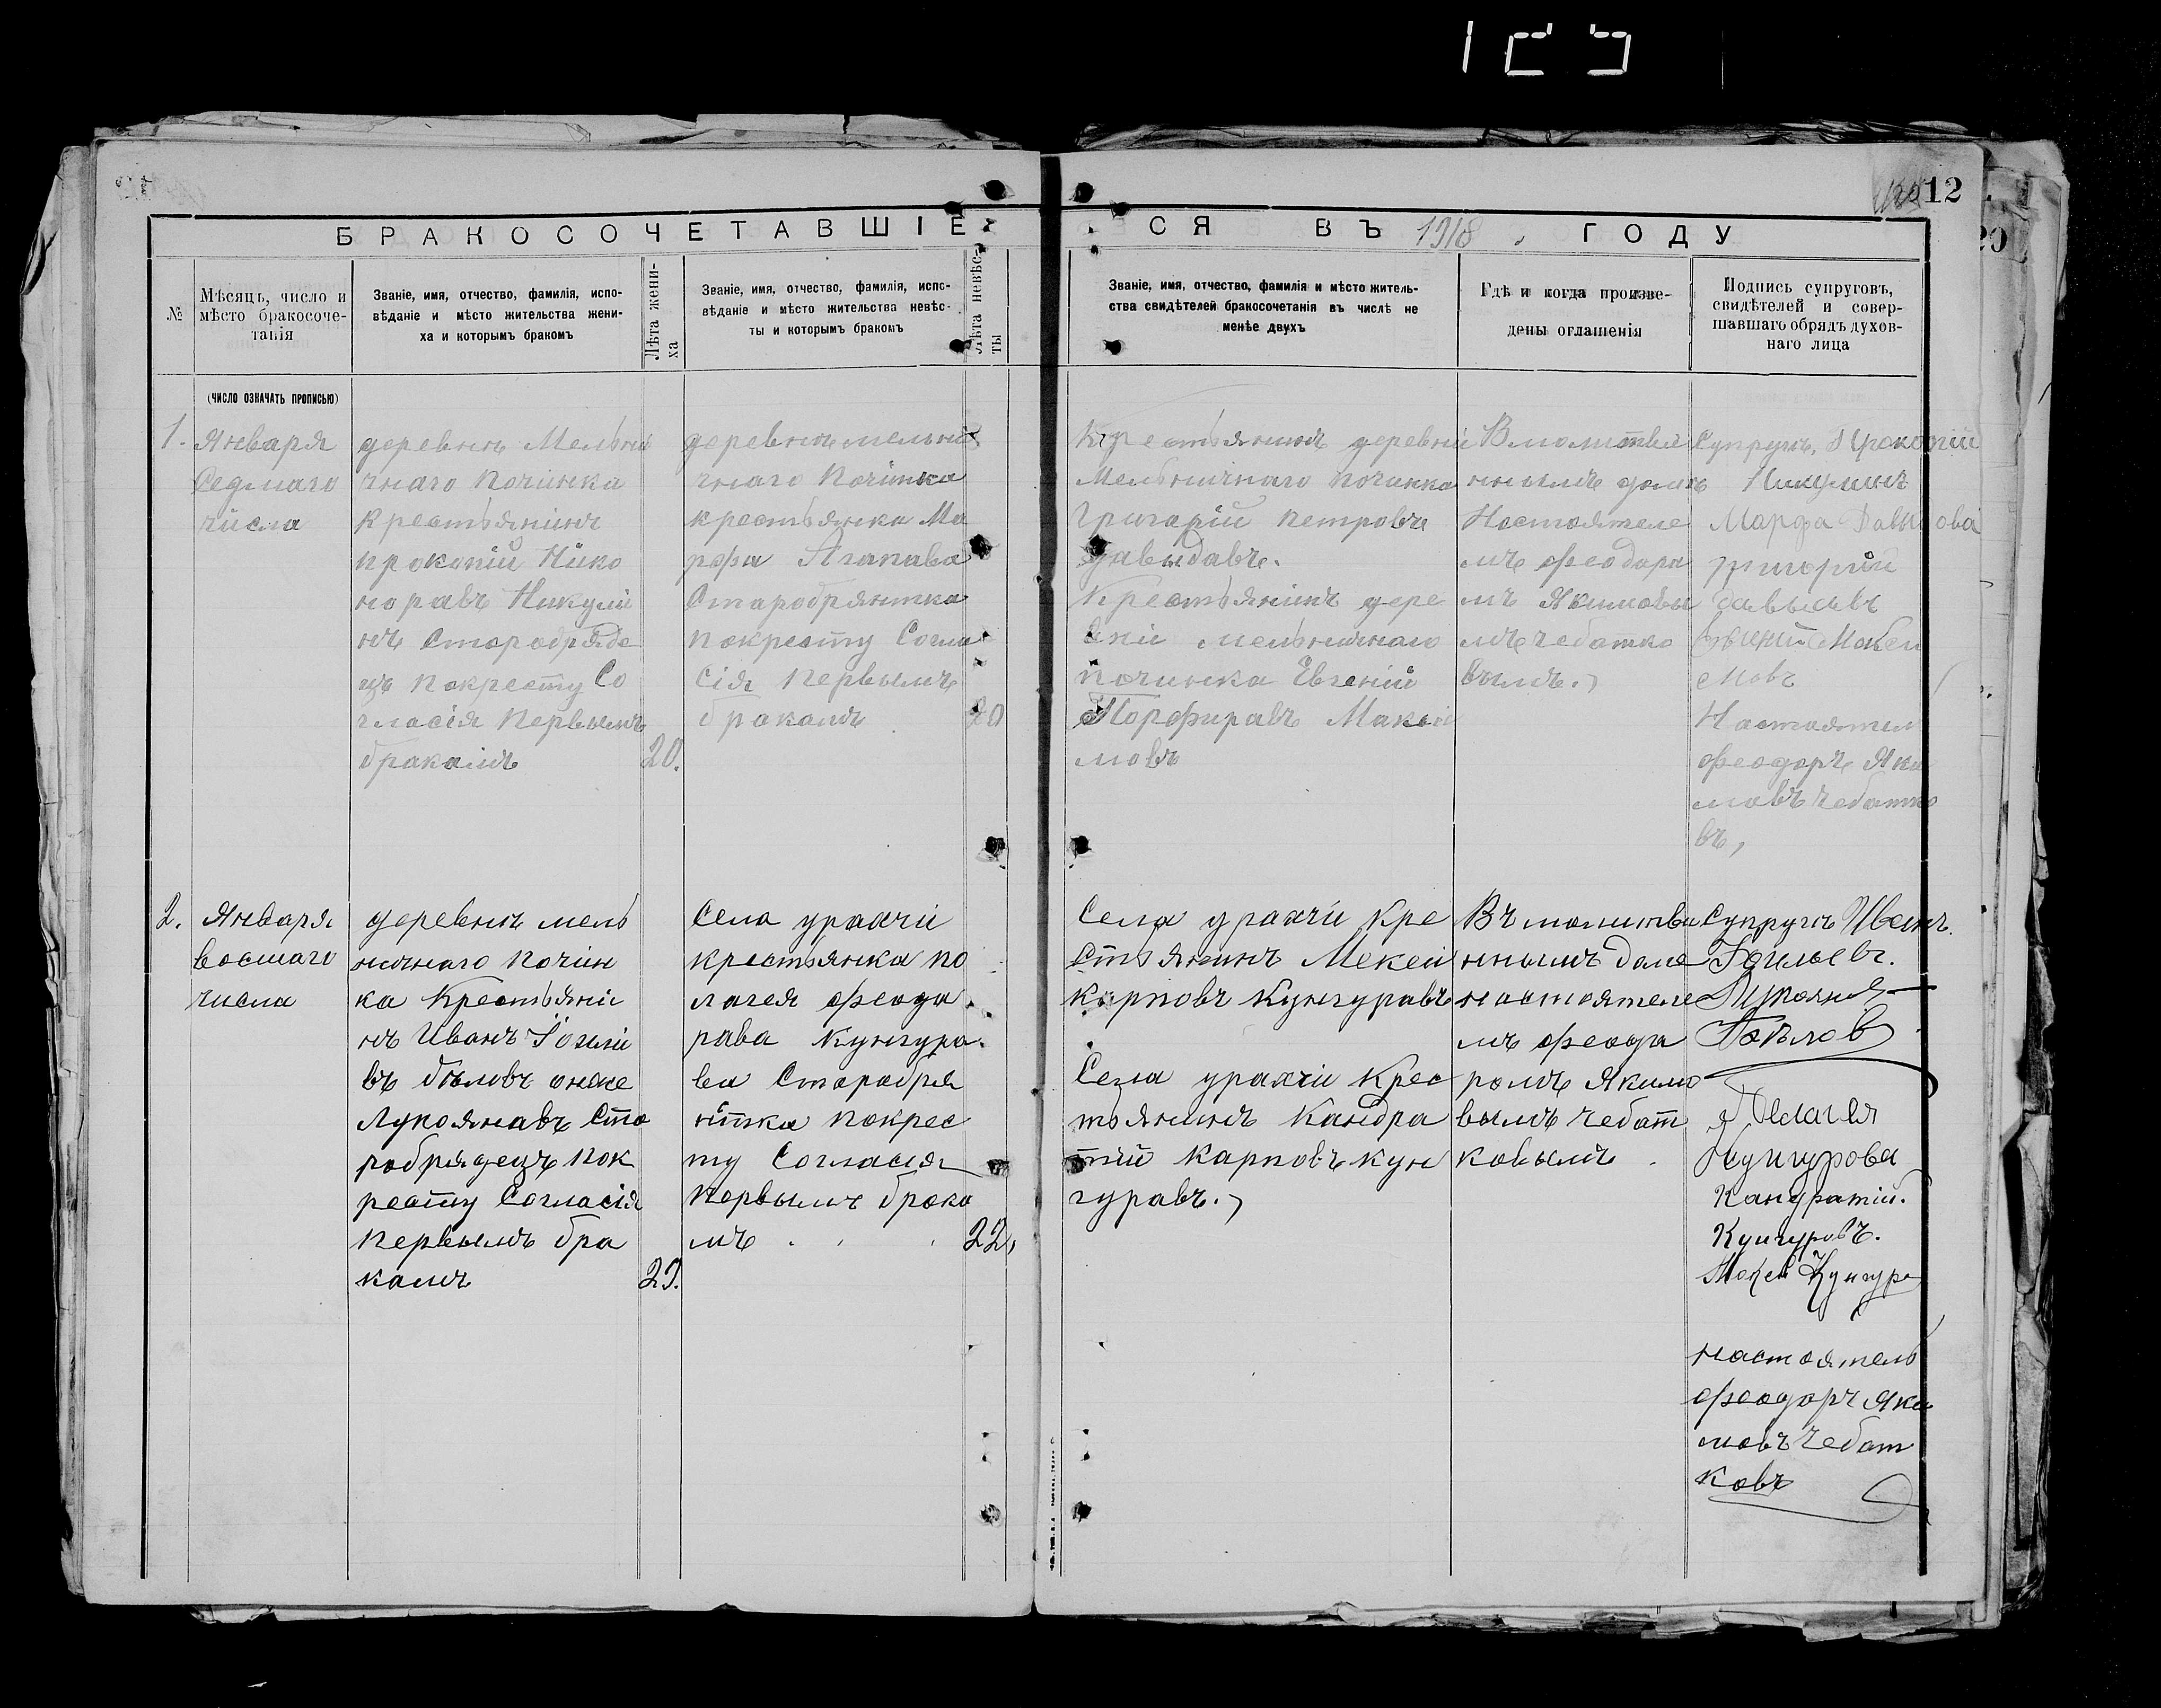 12
БРАКОСОЧЕТАВШІЕСЯ ВЪ 1918 ГОДУ
№
Мѣсяцъ, число и
мѣсто бракосоче-
танія
Званіе, имя, отчество, фамилія, испо-
вѣданіе и мѣсто жительства жени-
ха и которымъ бракомъ
Лѣта жени-
ха
Званіе, имя, отчество, фамилія, испо-
вѣданіе и мѣсто жительства невѣс-
ты и которымъ бракомъ
Лѣта невѣс-
ты
Званіе, имя, отчество, фамилія и мѣсто житель-
ства свидѣтелей бракосочетанія въ числѣ не
менѣе двухъ
Гдѣ и когда произве-
дены оглашенія
Подпись супруговъ,
свидѣтелей и совер-
шавшаго обрядъ духов-
наго лица
(ЧИСЛО ОЗНАЧАТЬ ПРОПИСЬЮ)
1.
Января
Седмаго
числа
деревнѣ Мельни
чнаго Починка
Крестьянинъ
прокопій Нико
норавъ Никули
нъ Старобряде
цъ покресту Со
гласія Первымъ
бракамъ
20.
деревнѣ мельни
чнаго Починка
крестьянка Ма
рфа Агапава
Старобрянтка
покресту Согла
сія Первымъ
бракамъ
20
Крестьянинъ деревни
Мельничнаго починка
Григарій Петровъ
давыдавъ.
Крестьянинъ дере
вни мельничнаго
починка Евгеній
Порфиравъ Макси
мовъ
В молитве
нномъ доме
Настоятеле
мъ феодара
мъ Якимовы
мъ чебатко
вымъ.
Супругъ, Прокопій
Никулинъ
Марфа Давыдова
григорій
давыдавъ
Настоятел
феодоръ Яки
мовъ чебатко
въ,
2.
Января
восмаго
числа
деревнѣ мель
ничнаго почин
ка Крестьяни
нъ Иванъ
въ бѣловъ онже
Лукоянавъ Ста
робрядецъ пок
ресту Согласія
Первымъ бра
камъ
29.
Села уракчи
крестьянка по
лагея феода
рава Кунгура
ва Старобря
нтка покрес
ту Согласія
Первымъ брака
мъ
22,
Села уракчи Кре
стьянинъ Мекей
Карповъ Кунгуравъ
Села уракчи Крес
тьянинъ Кандра
тій Карповъ кун
гуравъ.
Въ молитве
нномъ доме
настоятеле
мъ феода
ромъ Якимо
вымъ чебат
ковымъ
Супругъ Иванъ
Пелагея
Кунгурова
Кандратій.
Кунгуровъ.
Мокей Кунгура
настоятель
феодоръ Яки
мовъ чебат
ковъ